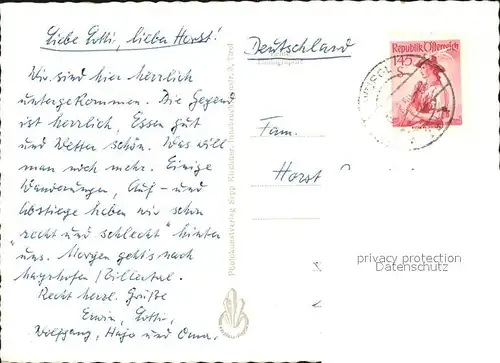 Liebe Lotti, lieber Horst!
Wir sind hier herrlich
untergekommen. Die Gegend
ist herrlich, Essen gut
und Wetter schön. Was will
man noch mehr. Einige
Wanderungen, Auf- und
Abstiege haben wir schon
"recht und schlecht" hinter
uns. Morgen geht's nach
Mayrhofen / Zillertal.
Recht herzl. Grüße
Erwin, Lotti,
Wolfgang, Hajo und Oma.
Photokunstverlag Sepp
Deutschland
Fam.
Horst
Republik Österreich
1.45
S
privacy protection
Datenschutz